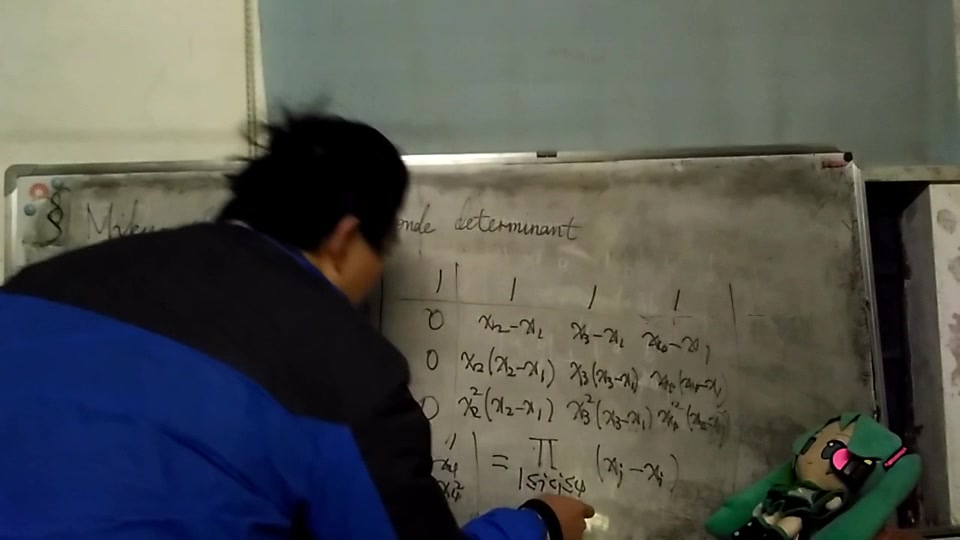 determinant
1 1 1 1
0 x₂-x₁ x₃-x₁ x₄-x₁
0 x₂(x₂-x₁) x₃(x₃-x₁) x₄(x₄-x₁)
0 x₂²(x₂-x₁) x₃²(x₃-x₁) x₄²(x₄-x₁)
= ∏ (xⱼ-xᵢ)
1≤i<j≤4